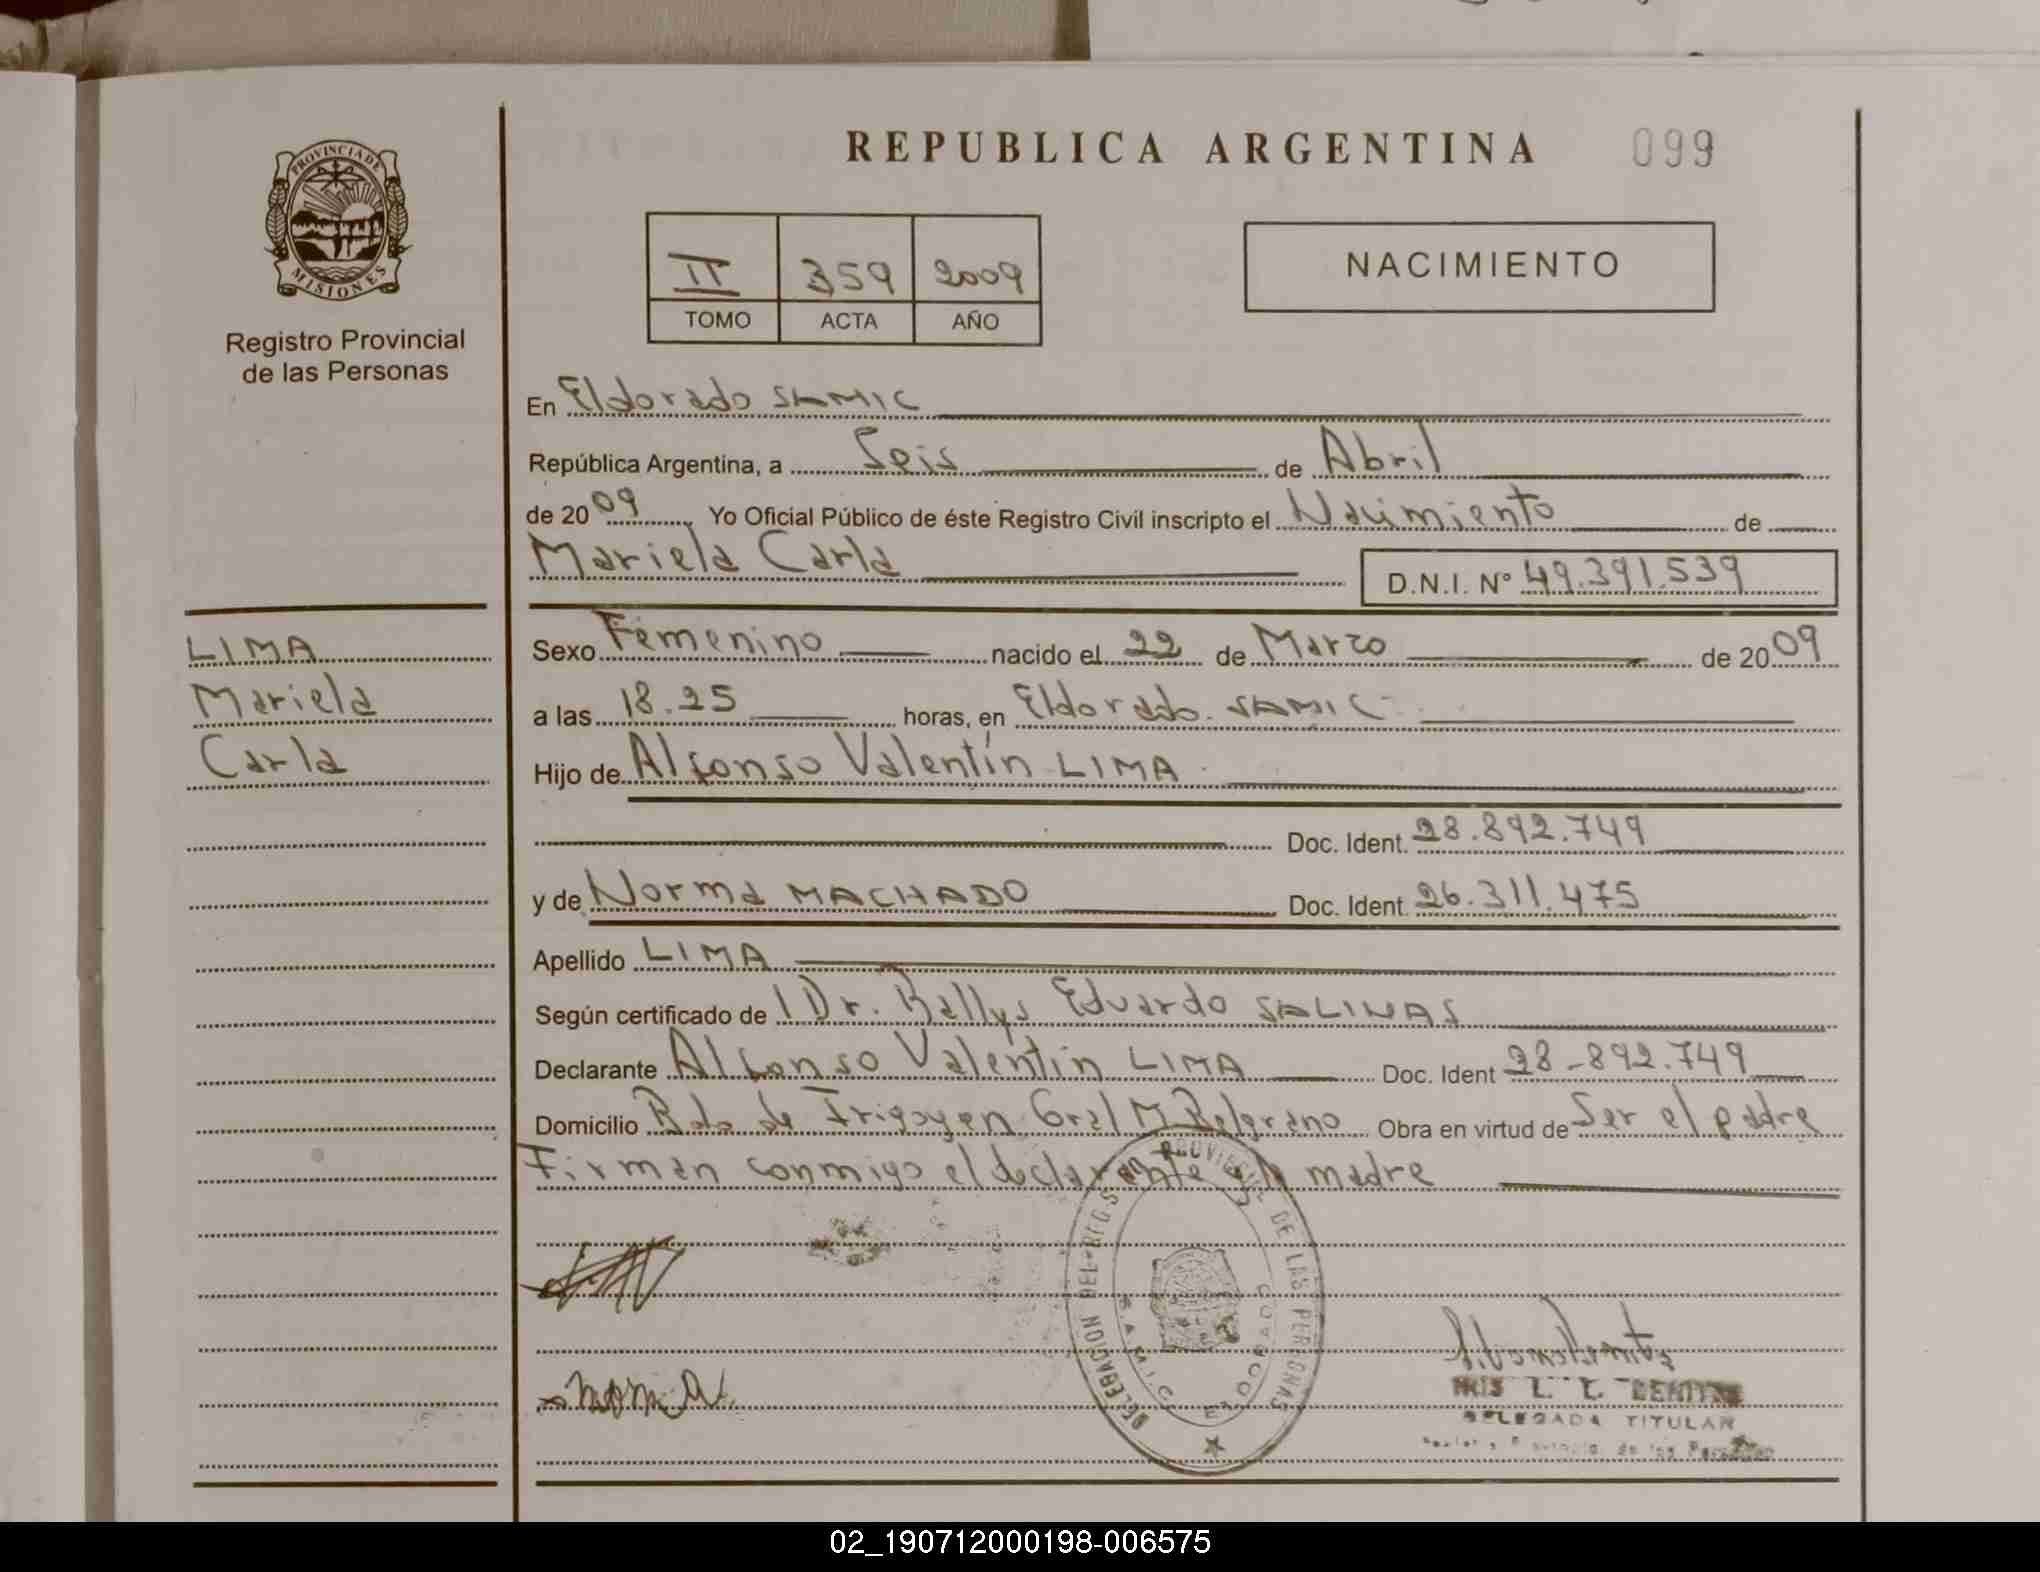 REPUBLICA ARGENTINA 099
PROVINCIA DE
MISIONES
Registro Provincial
de las Personas
II 359 2009
TOMO ACTA AÑO
NACIMIENTO
En Eldorado SAMIC
República Argentina, a Seis de Abril
de 2009 Yo Oficial Público de éste Registro Civil inscripto el Nacimiento de
Mariela Carla D.N.I. Nº 49.391.539
LIMA
Mariela
Carla
Sexo Femenino nacido el 22 de Marzo de 2009
a las 18.25 horas, en Eldorado. SAMIC-
Hijo de Alfonso Valentín LIMA
Doc. Ident. 28.892.749
y de Norma MACHADO Doc. Ident. 26.311.475
Apellido LIMA
Según certificado de Dr. Rallys Eduardo SALINAS
Declarante Alfonso Valentín LIMA Doc. Ident 28-892.749
Domicilio Bdo de Irigoyen Gral M Belgrano Obra en virtud de Ser el padre
Firman conmigo el declarante y la madre
DELEGACION DEL REGISTRO PROVINCIAL DE LAS PERSONAS
S.A.M.I.C. ELDORADO
DELEGADA TITULAR
02_190712000198-006575